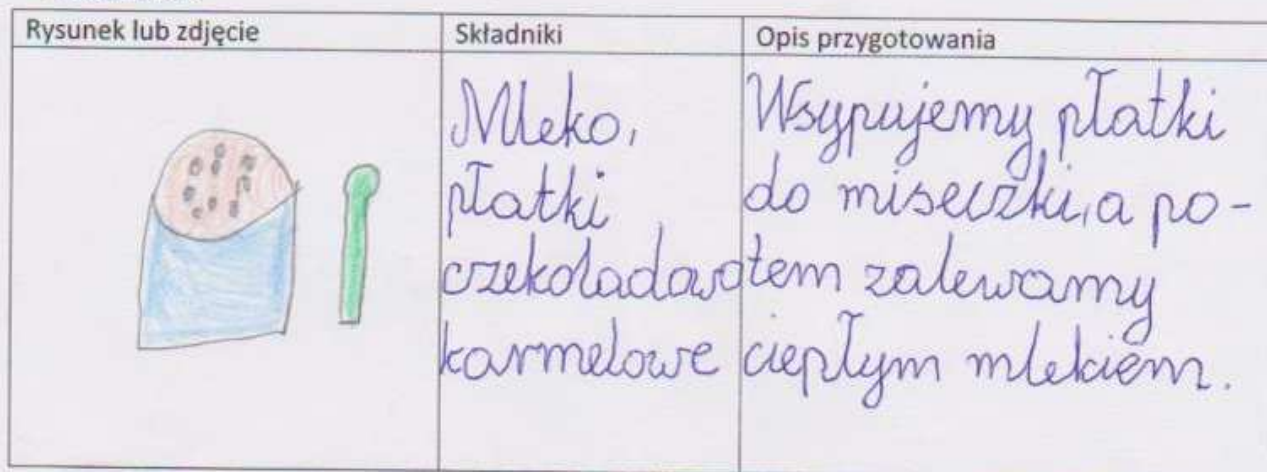 Rysunek lub zdjęcie
Składniki
Opis przygotowania
Mleko,
płatki
czekoladowo
karmelowe
Wsypujemy płatki
do miseczki, a po-
tem zalewamy
ciepłym mlekiem.